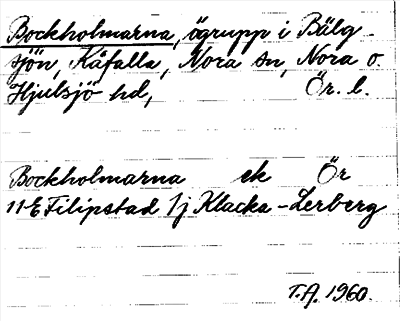 Bockholmarna, ögrupp i Bälg-
sjön, Kåfalla, Nora sn, Nora o.
Hjulsjö hd, Ör. l.
Bockholmarna ek Ör
11-E Filipstad 1/j Klacka-Lerberg
T.A. 1960.